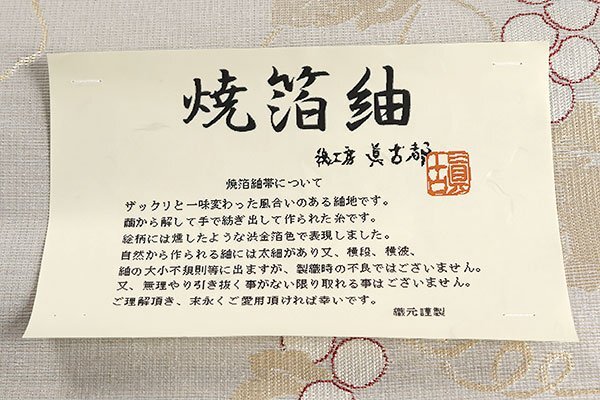 焼箔紬
織工房 眞古都
焼箔紬帯について
ザックリと一味変わった風合いのある紬地です。
繭から解して手で紡ぎ出して作られた糸です。
絵柄には燻したような渋金箔色で表現しました。
自然から作られる紬には太細があり又、横段、横波、
紬の大小不規則等に出ますが、製織時の不良ではございません。
又、無理やり引き抜く事がない限り取れる事はございません。
ご理解頂き、末永くご愛用頂ければ幸いです。
織元謹製